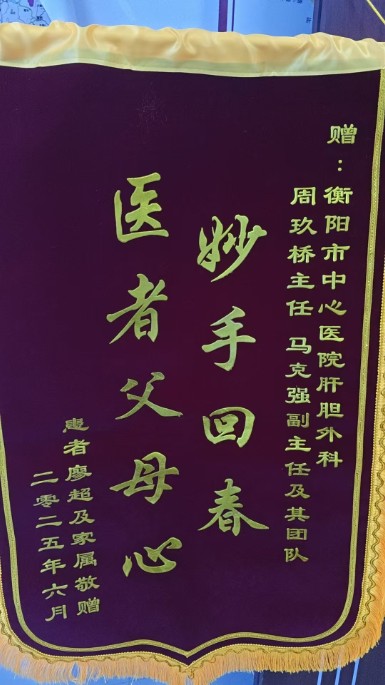 赠：衡阳市中心医院肝胆外科
周玖桥主任 马克强副主任及其团队
妙手回春
医者父母心
患者廖超及家属敬赠
二零二五年六月